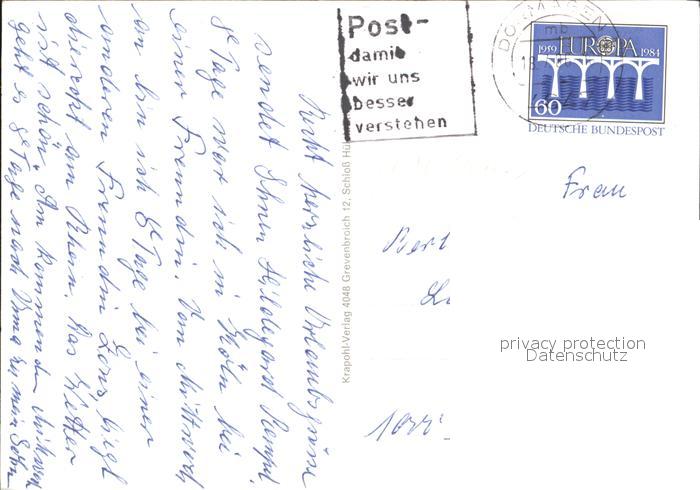 Post-
damit
wir uns
besser
verstehen
DORMAGEN
mb
1959 EUROPA 1984
60
DEUTSCHE BUNDESPOST
Recht herzliche Urlaubsgrüße
sendet Ihnen Hildegard
8 Tage war ich in Köln bei
einer Freundin. Vom Mittwoch
an bin ich 8 Tage bei einer
anderen Freundin. Zons liegt
direkt am Rhein. Das Wetter
ist schön. Am kommenden Mittwoch
geht es 8 Tage nach
Krapohl-Verlag 4048 Grevenbroich 12, Schloß Hü
Frau
privacy protection
Datenschutz